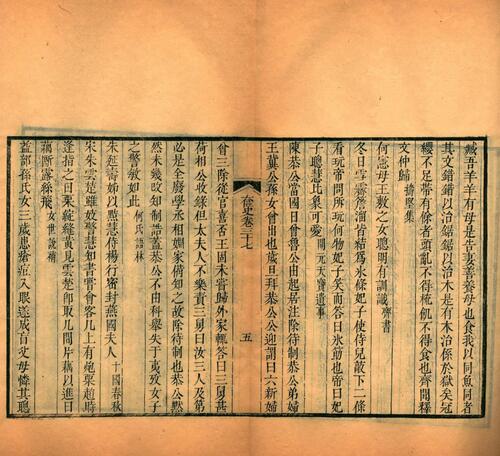 臧吾羊羊有母是告妻善養母也食我以同魚同者
其文錯錯以治鋸鋸以治木是有木治係於獄矣冠
纓不足帶有餘者頭亂不得梳飢不得食也齊聞釋
文仲歸
何憲母王敷之女聰明有訓識齊書
冬日雪霽簷溜皆結為氷條妃子使侍兒敲下二條
看玩帝問所玩何物妃子笑而答曰氷筯也帝曰妃
子聰慧比象可愛開元天寶遺事
陳恭公當國日曾魯公由起居注除待制恭公弟婦
王冀公孫女曾出也歲旦拜恭公公迎謂曰六新婦
奩史卷三十七
五
曾三除從官喜否王固未嘗歸外家輒答曰三舅甚
荷相公收錄但太夫人不樂責三舅曰汝三人及第
必是全廢學丞相姻家備知之故除待制也恭公默
然未幾改知制誥蓋恭公不由科舉失于夷攷女子
之警敏如此何氏語林
朱延壽姊以黠慧侍楊行密封燕國夫人十國春秋
宋朱雲楚雖妓警慧知書嘗會客几上有瓟栗趙時
逢指之曰栗綻縫黃見雲楚卽取几間片藕以進曰
藕斷露絲飛女世說補
益部孫氏女三歲患瘡痘入眼遂成盲父母憐其聰